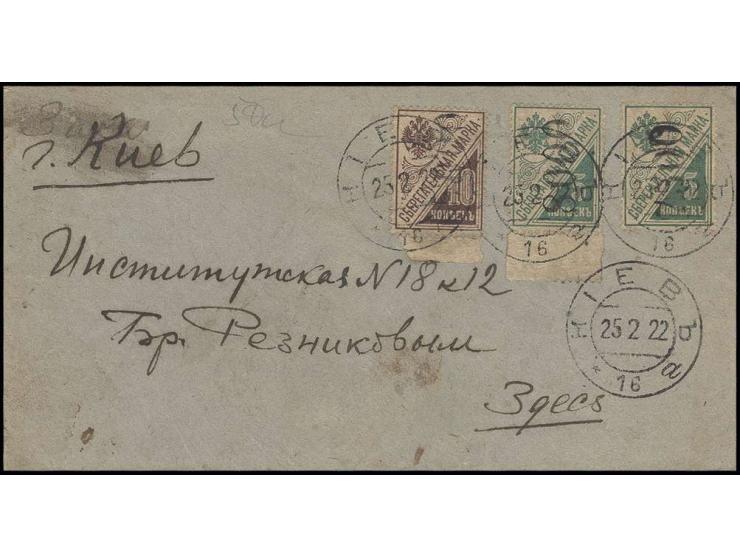 г. Киев
50к
СБЕРЕГАТЕЛЬНАЯ МАРКА
10
КОПѢЕКЪ
СБЕРЕГАТЕЛЬНАЯ МАРКА
5
КОПѢЕКЪ
СБЕРЕГАТЕЛЬНАЯ МАРКА
5
КОПѢЕКЪ
КІЕВЪ
25 2 22
16 а
Институтская N 18 к 12
Бр. Резниковым
Здесь